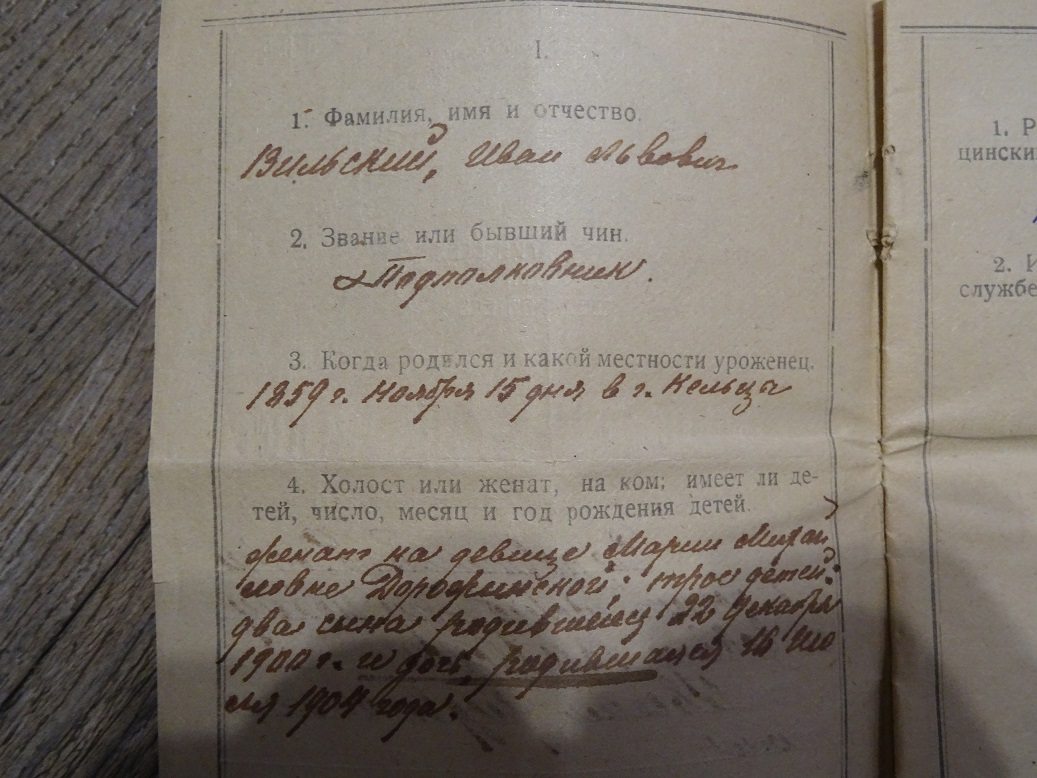 I.
1. Фамилия, имя и отчество.
Вильский, Иван Львович
2. Звание или бывший чин.
Подполковник.
3. Когда родился и какой местности уроженец.
1859 г. Ноября 15 дня в г. Кельцы
4. Холост или женат, на ком; имеет ли де-
тей, число, месяц и год рождения детей.
женат на девице Марии Михай
ловне; трое детей:
два сына родившиеся 22 Декабря
1900 г. и дочь, родившаяся 16 Ию
ля 1904 года.
1. Р
цински
2. И
службе